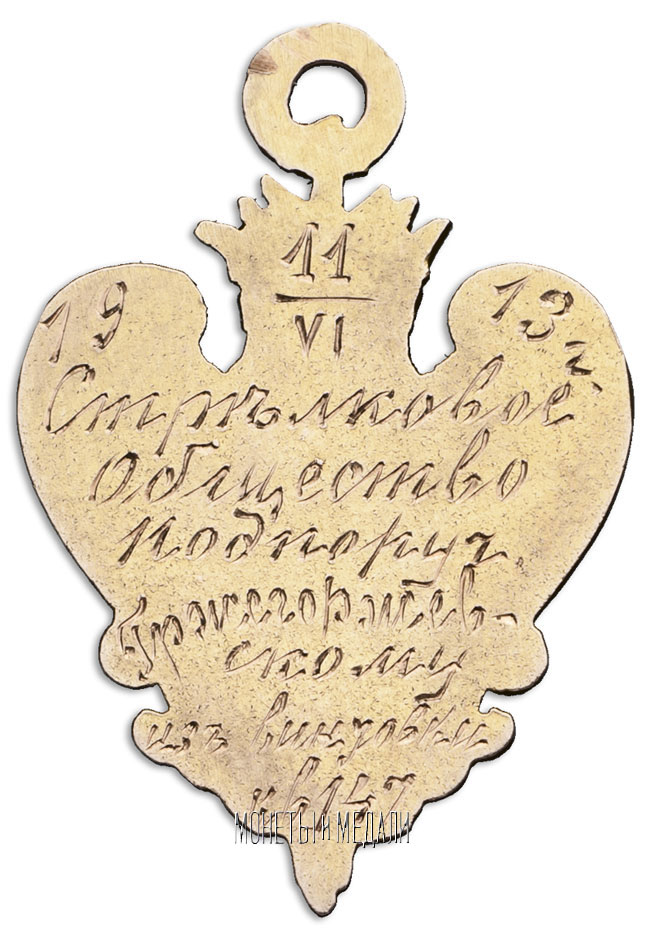 11
VI
19 13 г.
Стрѣлковое
Общество
подпоруч.
Гржегоржев-
скому
изъ винтовки
147
МОНЕТЫ И МЕДАЛИ